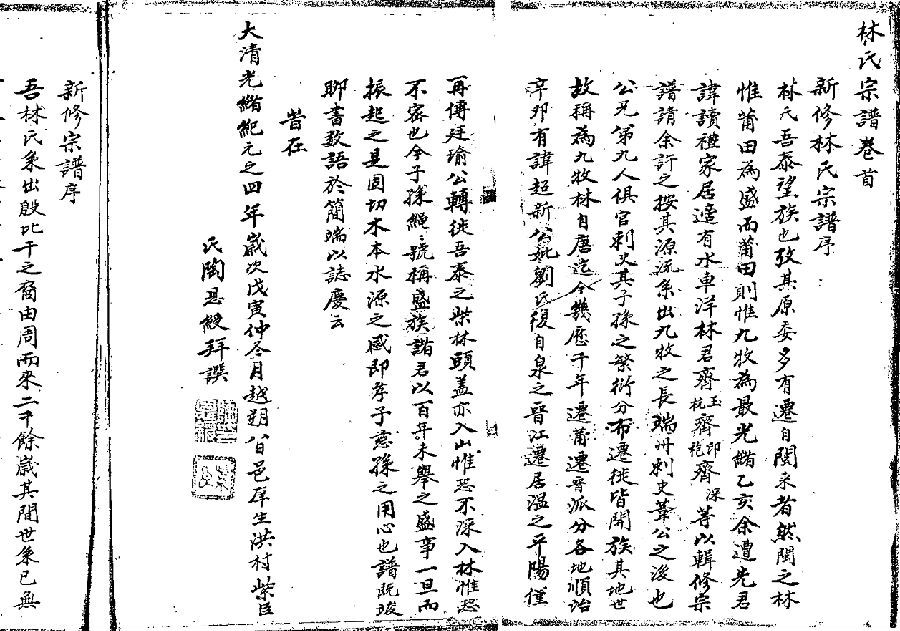 林氏宗譜卷首
新修林氏宗譜序
林氏吾泰望族也攷其原委多有遷自閩來者然閩之林
惟莆田為盛而莆田則惟九牧為最光緒乙亥余遭先君
諱讀禮家居適有水車洋林君齊玉齊卯齊深等以輯修宗
譜請余許之按其源流系出九牧之長端州刺史葦公之後也
公兄弟九人俱官刺史其子孫之繁衍分布遷徙皆開族其地世
故稱為九牧林自唐迄今幾歷千年遷莆遷晉派分各地順治
辛卯有諱超新公妣劉氏復自泉之晉江遷居溫之平陽僅
再傳廷瑜公轉徙吾泰之柴林頭蓋亦入山惟恐不深入林惟恐
不密也今子孫繩繩號稱盛族諸君以百年未舉之盛事一旦而
振起之是固切木本水源之感即孝子慈孫之用心也譜既竣
聊書數語於簡端以誌慶云
昔在
大清光緒紀元之四年歲次戊寅仲冬月越朔八日邑庠生洪村柴臣
氏陶恩綬拜譔
新修宗譜序
吾林氏系出殷比干之裔由周而來二千餘歲其間世系已無